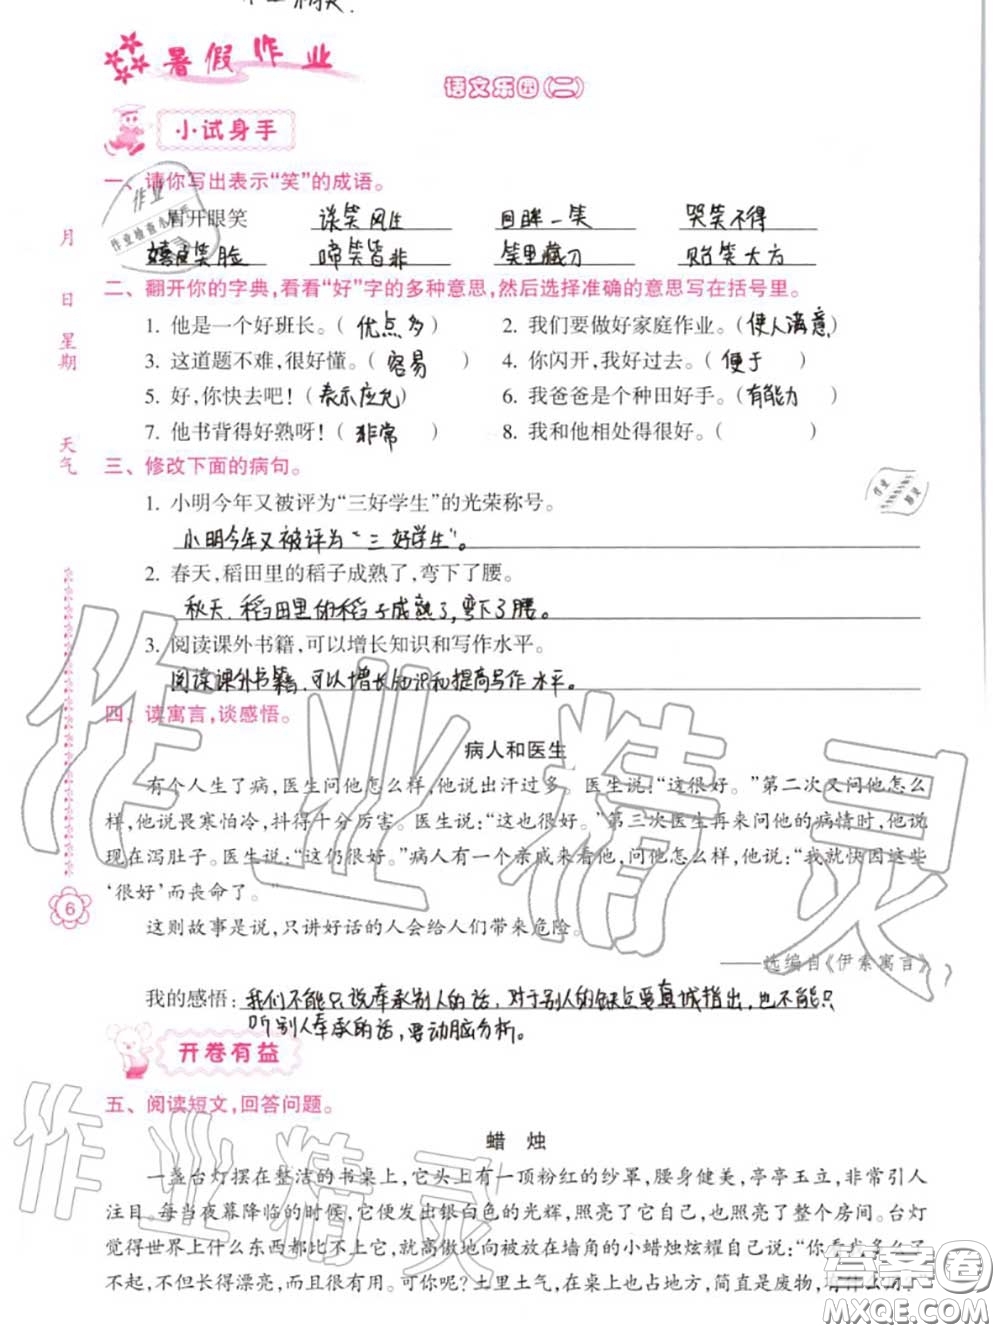 暑假作业
语文乐园(二)
小试身手
一、请你写出表示“笑”的成语。
眉开眼笑 谈笑风生 回眸一笑 哭笑不得
嬉皮笑脸 啼笑皆非 笑里藏刀 贻笑大方
二、翻开你的字典,看看“好”字的多种意思,然后选择准确的意思写在括号里。
1. 他是一个好班长。(优点多) 2. 我们要做好家庭作业。(使人满意)
3. 这道题不难,很好懂。(容易) 4. 你闪开,我好过去。(便于)
5. 好,你快去吧!(表示应允) 6. 我爸爸是个种田好手。(有能力)
7. 他书背得好熟呀!(非常) 8. 我和他相处得很好。( )
三、修改下面的病句。
1. 小明今年又被评为“三好学生”的光荣称号。
小明今年又被评为“三好学生”。
2. 春天,稻田里的稻子成熟了,弯下了腰。
秋天,稻田里的稻子成熟了,弯下了腰。
3. 阅读课外书籍,可以增长知识和写作水平。
阅读课外书籍,可以增长知识和提高写作水平。
四、读寓言,谈感悟。
病人和医生
有个人生了病,医生问他怎么样,他说出汗过多。医生说:“这很好。”第二次又问他怎么
样,他说畏寒怕冷,抖得十分厉害。医生说:“这也很好。”第三次医生再来问他的病情时,他说
现在泻肚子。医生说:“这仍很好。”病人有一个亲戚来看他,问他怎么样,他说:“我就快因这些
‘很好’而丧命了。”
这则故事是说,只讲好话的人会给人们带来危险。
——选编自《伊索寓言》
我的感悟:我们不能只说奉承别人的话,对于别人的缺点要真诚指出,也不能只
听别人奉承的话,要动脑分析。
开卷有益
五、阅读短文,回答问题。
蜡 烛
一盏台灯摆在整洁的书桌上,它头上有一顶粉红的纱罩,腰身健美,亭亭玉立,非常引人
注目。每当夜幕降临的时候,它便发出银白色的光辉,照亮了它自己,照亮了整个房间。台灯
觉得世界上什么东西都比不上它,就高傲地向被放在墙角的小蜡烛炫耀自己说:“你看我多么了
不起,不但长得漂亮,而且很有用。可你呢?土里土气,在桌上也占地方,简直是废物,
月
日
星期
天气
6
作业
作业检查小
作业精灵
作业精灵
答案圈
MXQE.COM